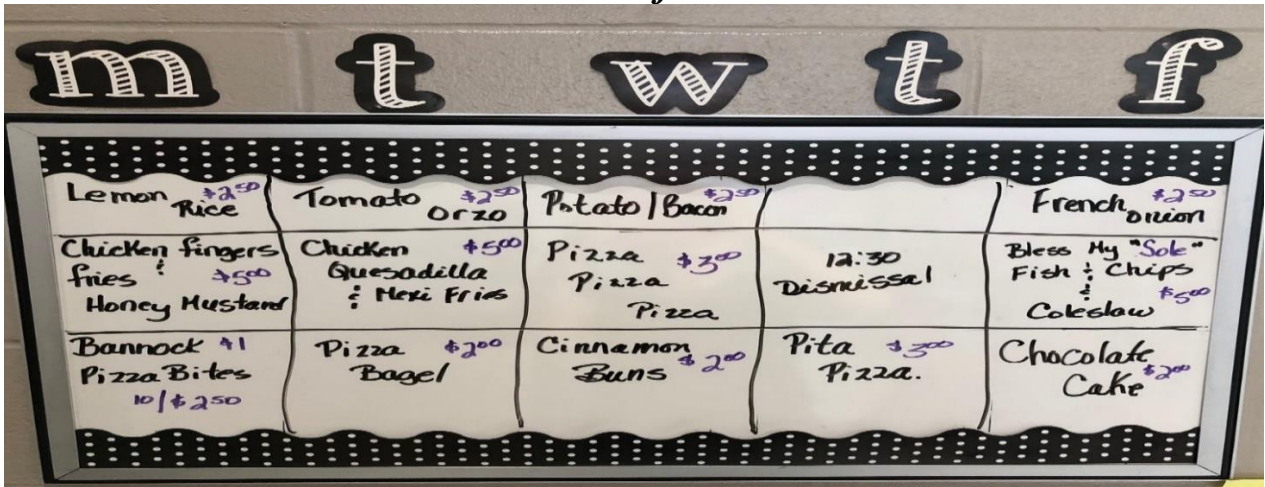 m t w t f
Lemon $2.50
Rice
Tomato $2.50
Orzo
Potato/Bacon $2.50
French $2.50
onion
Chicken fingers
& fries $5.00
Honey Mustard
Chicken $5.00
Quesadilla
& Mexi Fries
Pizza $3.00
Pizza
Pizza
12:30
Dismissal
Bless My "Sole"
Fish & Chips
& $5.00
Coleslaw
Bannock $1
Pizza Bites
10/$2.50
Pizza $2.00
Bagel
Cinnamon
Buns $2.00
Pita $3.00
Pizza.
Chocolate
Cake $2.00